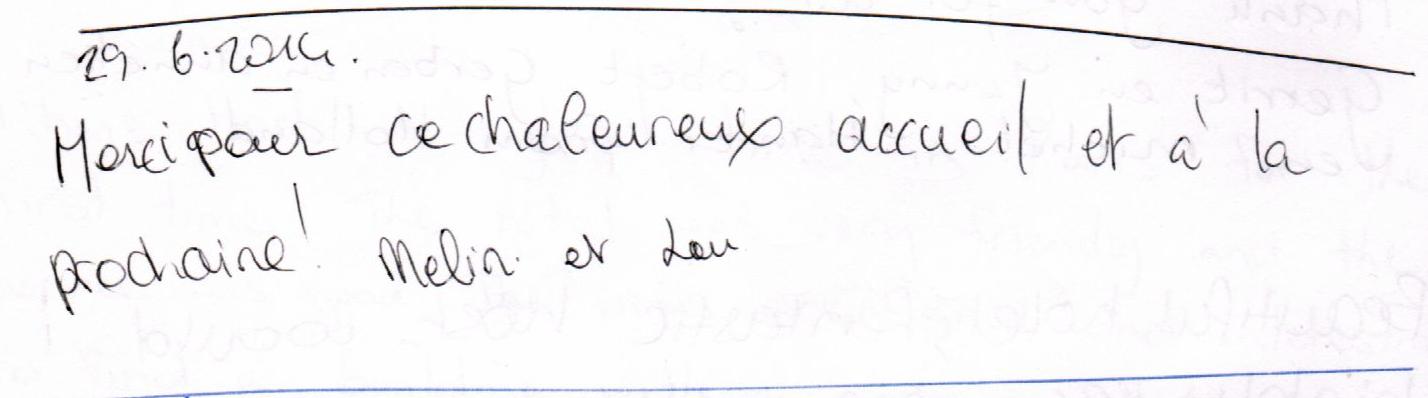 29.6.2014.
Merci pour ce chaleureux accueil et à la
prochaine! Melin. et Lou